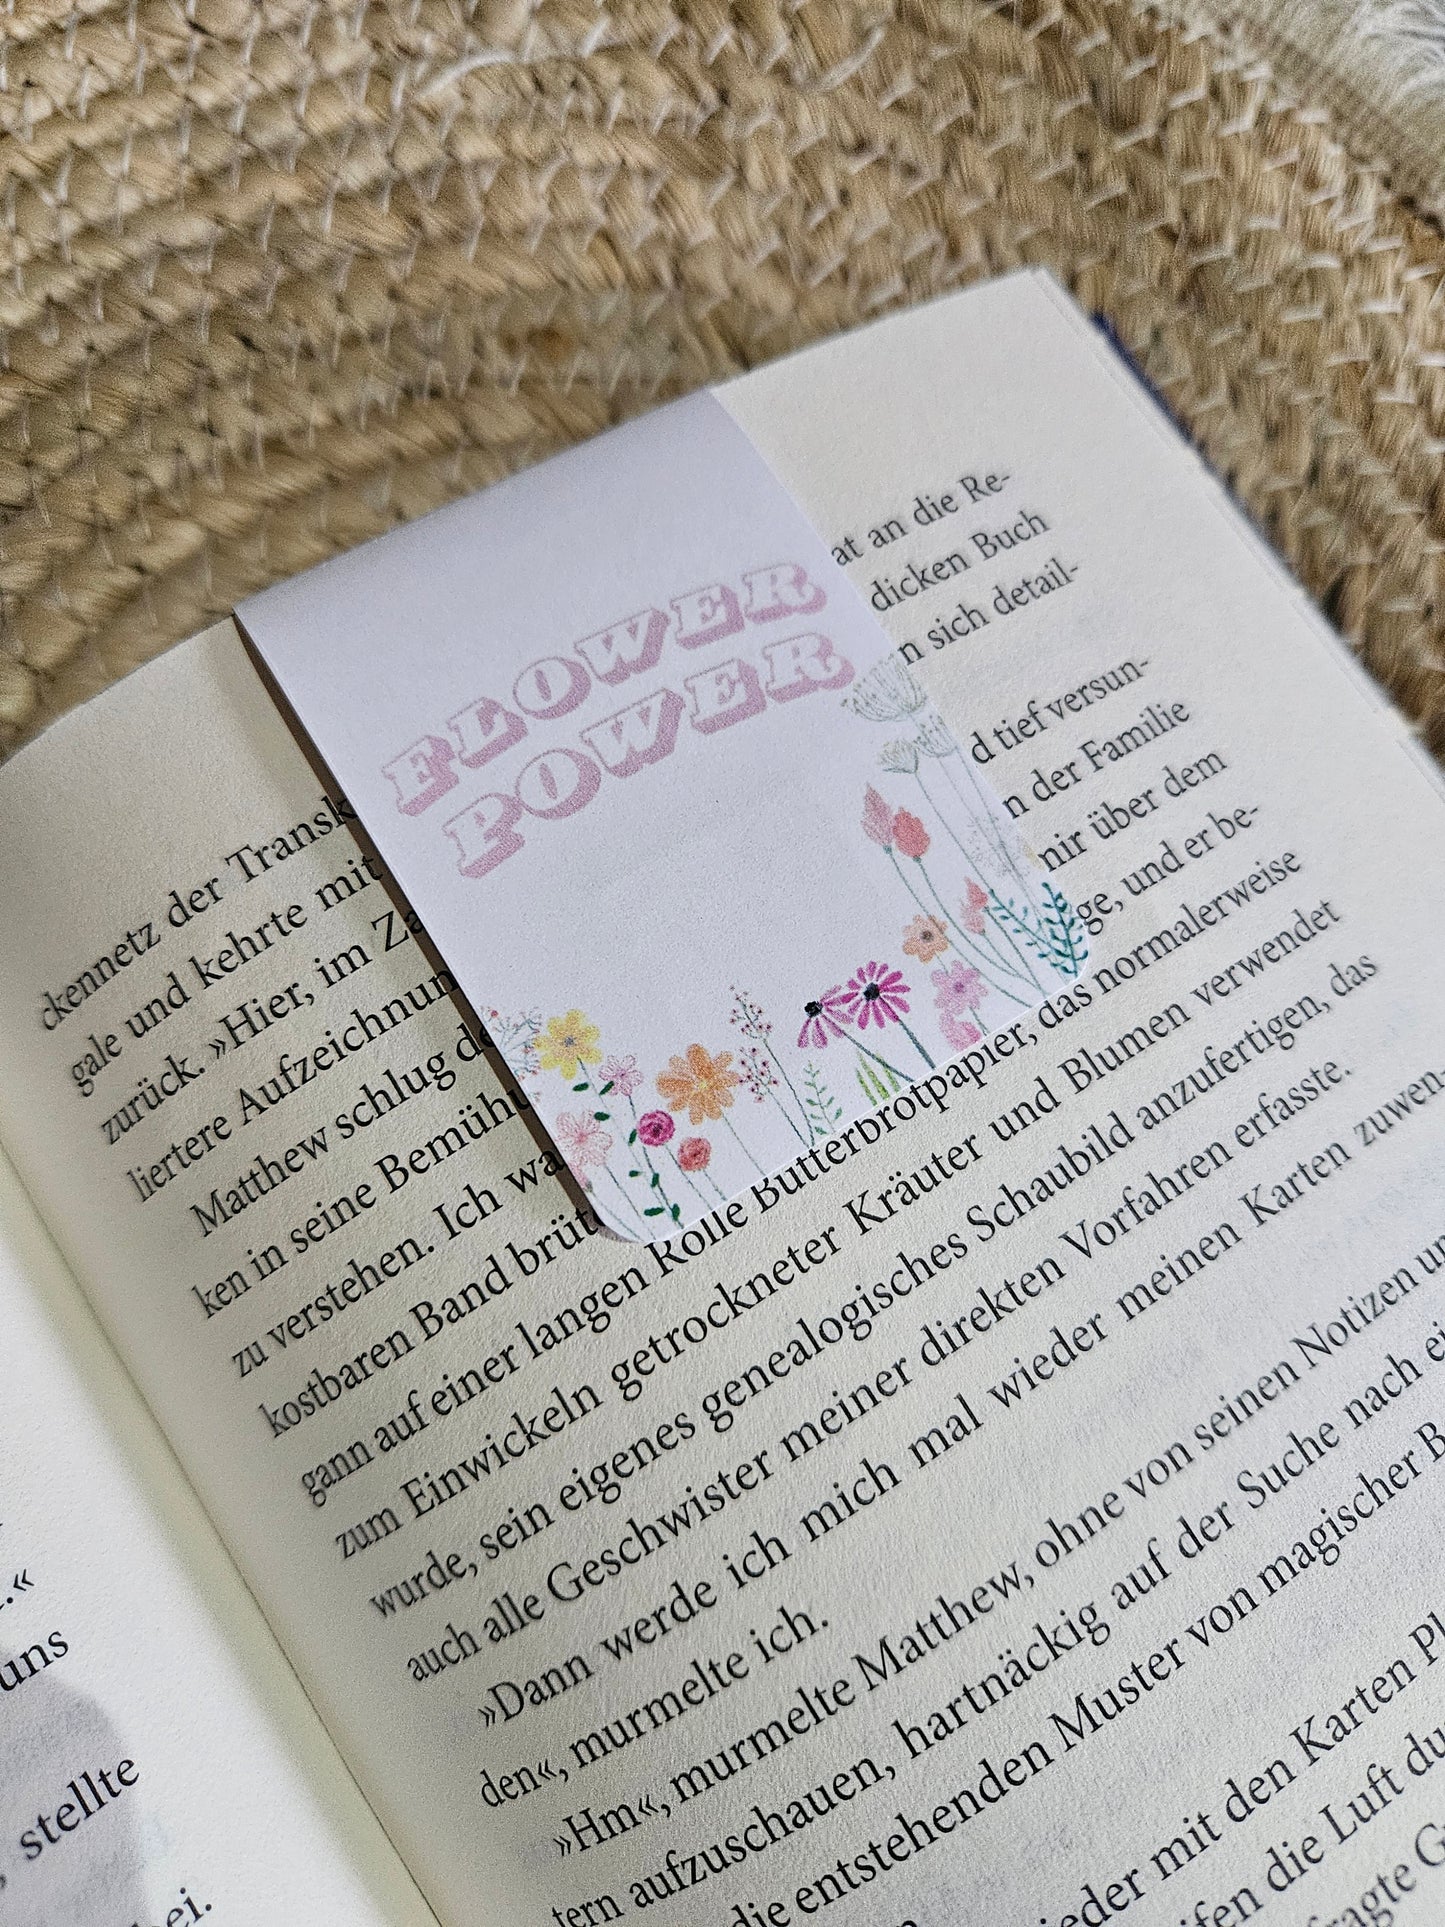 FLOWER
POWER
ckennetz der Transk at an die Re-
gale und kehrte mit dicken Buch
zurück. »Hier, im Za n sich detail-
liertere Aufzeichnun
Matthew schlug de d tief versun-
ken in seine Bemühu n der Familie
zu verstehen. Ich wa mir über dem
kostbaren Band brüte ge, und er be-
gann auf einer langen Rolle Butterbrotpapier, das normalerweise
zum Einwickeln getrockneter Kräuter und Blumen verwendet
wurde, sein eigenes genealogisches Schaubild anzufertigen, das
auch alle Geschwister meiner direkten Vorfahren erfasste.
»Dann werde ich mich mal wieder meinen Karten zuwen-
den«, murmelte ich.
»Hm«, murmelte Matthew, ohne von seinen Notizen un
tern aufzuschauen, hartnäckig auf der Suche nach ei
die entstehenden Muster von magischer B
eder mit den Karten Pl
ifen die Luft du
fragte G
.«
uns
, stellte
bei.